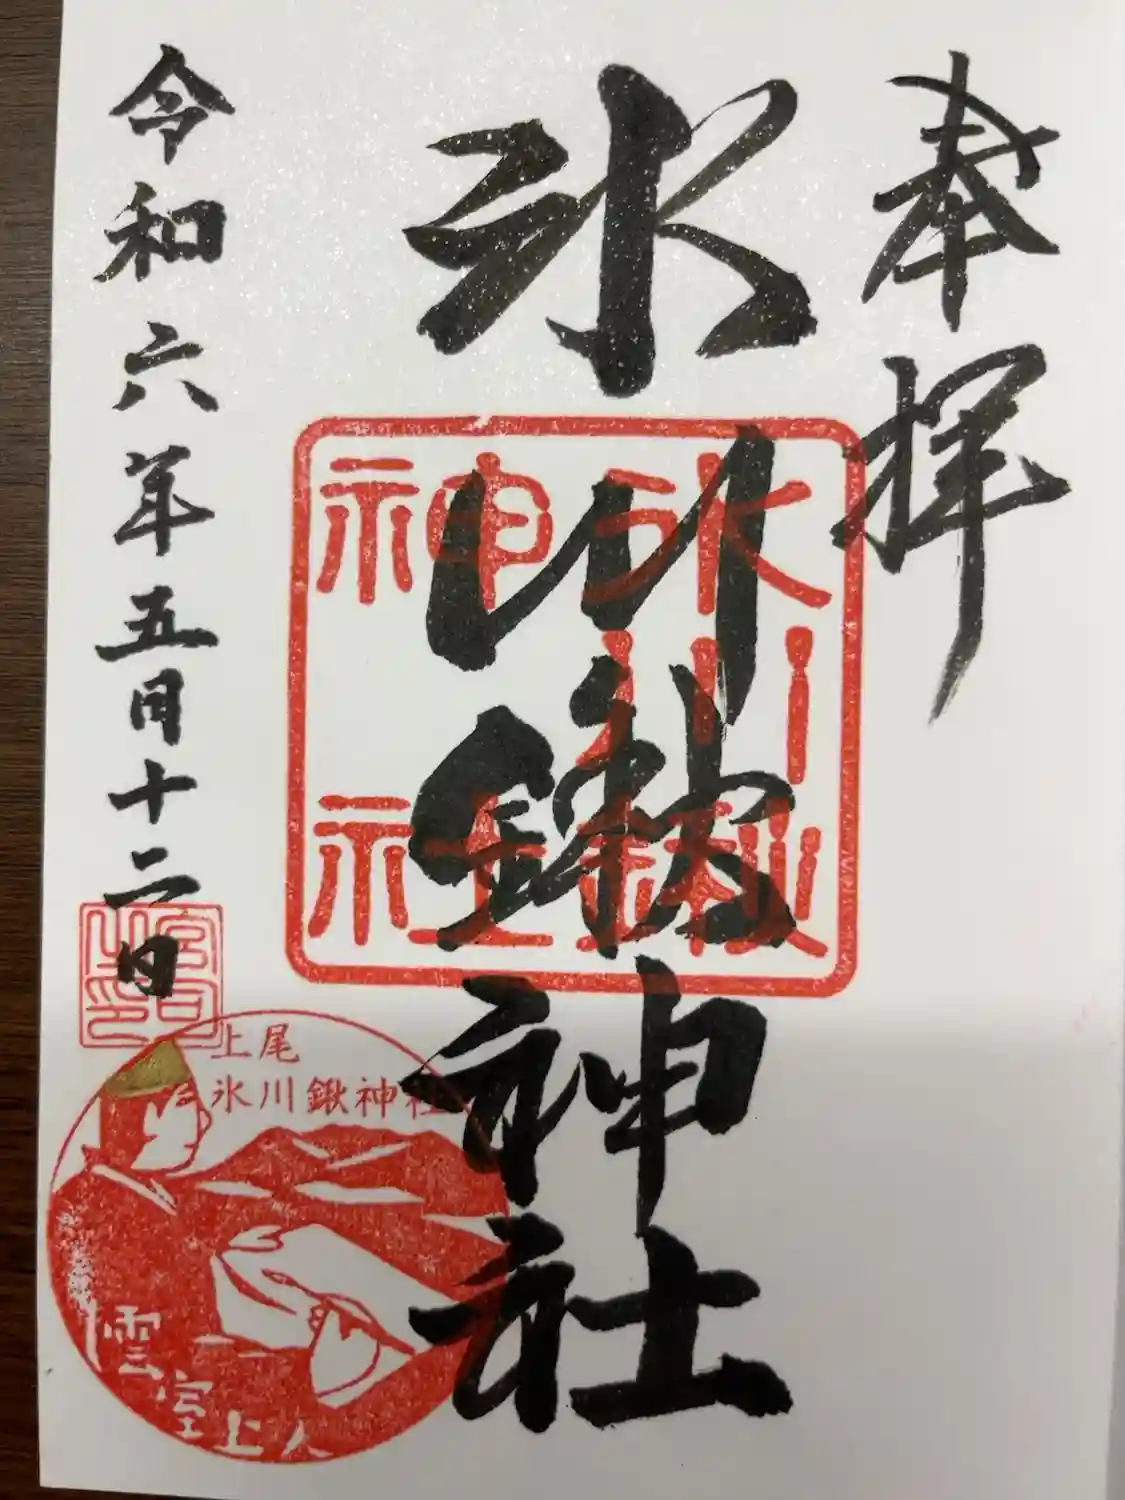 奉拝
氷川鍬神社
氷川
鍬
神
社
令和六年五月十二日
宮司
之印
上尾
氷川鍬神社
雲室上人